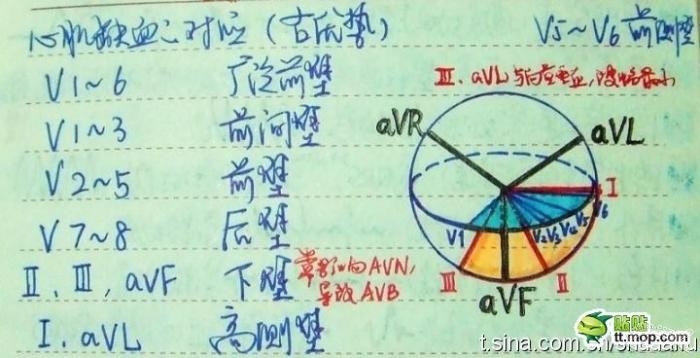 心肌缺血:对应(古氏垫)
V5~V6 前侧壁
V1~6 广泛前壁
V1~3 前间壁
V2~5 前壁
V7~8 后壁
II、III、aVF 下壁
常影响AVN,
导致AVB
I、aVL 高侧壁
III、aVL
aVR
aVL
I
V1
V2
V3
V4
V5
V6
III
II
aVF
贴贴
tt.mop.com
t.sina.com.cn/